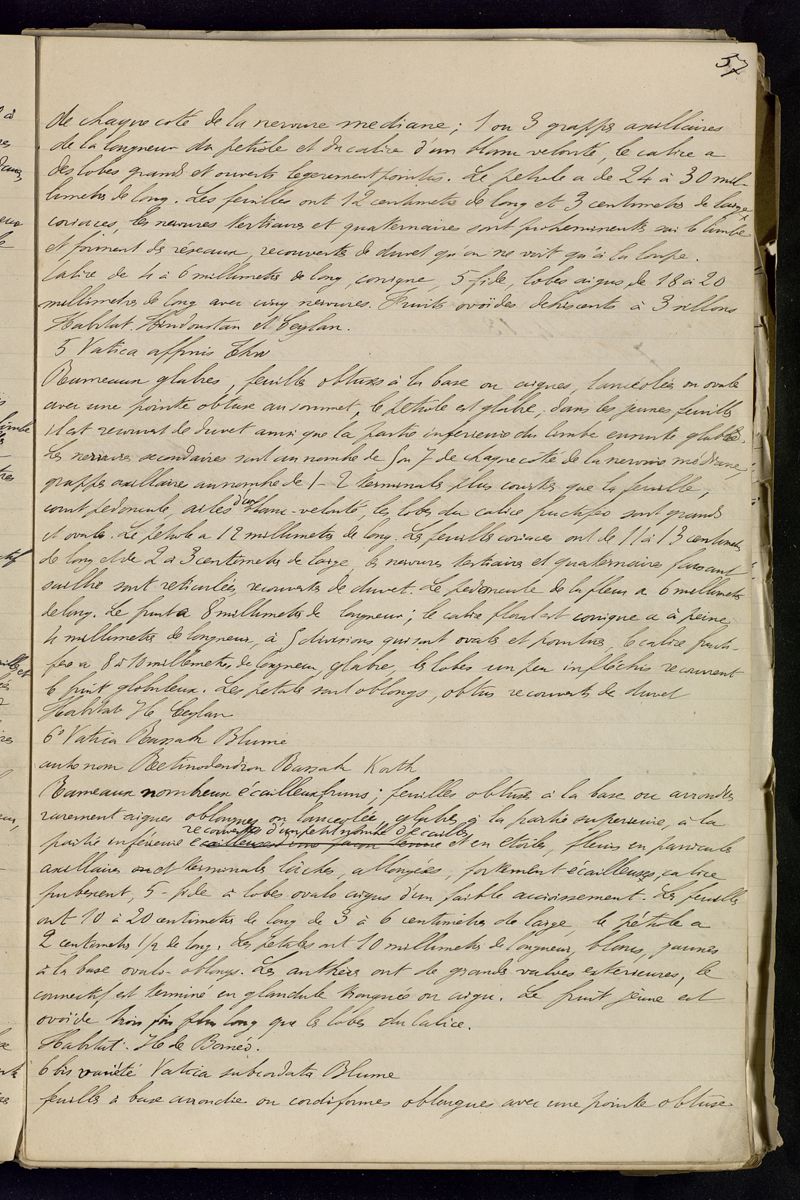 57
de chaque coté de la nervure mediane; 1 ou 3 grapps axillaires
de la longueur du petiole et du calice d'un blanc velouté, le calice a
des lobes grands et ouverts legerement pointus. Le petiole a de 24 à 30 mil-
limetres de long. Les feuilles ont 12 centimets de long et 3 centimetres de large
coriaces, les nervures tertiaires et quaternaires sont proheminents sur le limbe
et forment des réseaux, recouverts de duvet qu'on ne voit qu'à la loupe.
Calice de 4 à 6 millimetres de long, conique, 5 fide, lobes aigus, de 18 à 20
millimetres de long avec cinq nervures. Fruits ovoides dehiscents à 3 sillons
Habitat. Hindoustan et Ceylan.
5 Vatica affinis Thw
Rameaux glabres, feuilles obtuses à la base ou aigues, lanceolées ou ovale
avec une pointe obtuse au sommet, le petiole est glabre, dans les jeunes feuilles
il est recouvert de duvet ainsi que la partie inferieure du limbe ensuite glabre.
Les nervures secondaires sont au nombre de 5 ou 7 de chaque coté de la nervure médiane,
grapps axillaires au nombre de 1-2 terminals plus courtes que la feuille,
court pedoncule, d'un blanc-velouté, les lobes du calice fructifere sont grands
et ovals. Le petiole a 12 millimetres de long. Les feuilles coriaces ont de 11 à 13 centimets
de long et de 2 à 3 centimetres de large, les nervures tertiaires et quaternaires faisant
saillie sont reticulées, recouverts de duvet. Le pedoncule de la fleur a 6 millimets
de long. Le fruit a 8 millimets de longueur; le calice floral est conique a à peine
4 millimetres de longueur, à 5 divisions qui sont ovals et pointus, le calice fructi-
fere a 8 à 10 millimetres de longueur, glabre, les lobes un peu inflechis recouvrent
le fruit globuleux. Les petals sont oblongs, obtus recouverts de duvet
Habitat Ile Ceylan
6° Vatica Rassak Blume
autre nom Retinodendron Rassak Korth
Rameaux nombreux écailleux bruns; feuilles obtuses à la base ou arrondies
rarement aigues oblongues ou lanceolée, glabres à la partie superieure, à la
partie inférieure recouverte d'un petit nombre d'écailles et en étoiles, fleurs en panicule
axillaire ou et terminals lâches, allongées, fortement écailleuses, calice
pubescent, 5-fide à lobes ovals aigus d'un faible accroissement. Les feuilles
ont 10 à 20 centimetres de long de 3 à 6 centimetres de large, le pétiole a
2 centimetres 1/2 de long. Les petales ont 10 millimetres de longueur, blancs, jaunes
à la base ovals-oblongs. Les anthères ont de grands valves exterieures, le
connectif est terminé en glandule tronquée ou aigue. Le fruit jeune est
ovoide trois fois plus long que les lobes du calice.
Habitat. Ile de Bornéo.
6 bis variété Vatica subcordata Blume
feuilles à base arrondie ou cordiformes oblongues avec une pointe obtuse